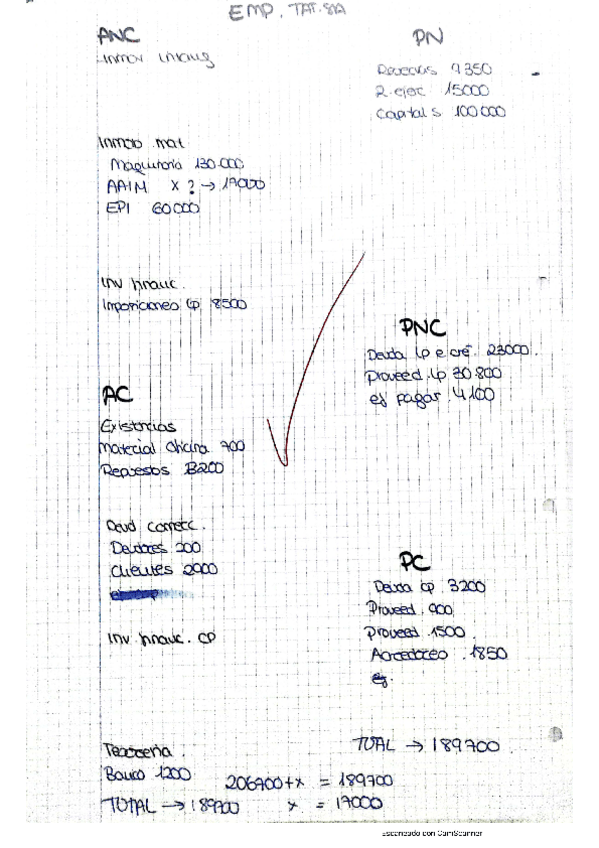 EMP. TAT. SIA
ANC
Inmov intang
Inmov mat
Maquinaria 130.000
AAIM X ? → 17000
EPI 60000
Inv financ.
Imposiciones lp 8500
AC
Existncias
Material oficina 700
Repuestos 3200
Deud comerc.
Deudores 200
Clientes 2900
Inv. financ. CP
Tesoreria.
Banco 1200
TOTAL → 189700
206700 + x = 189700
x = 17000
PN
Reservas 9350
R. ejer 15000
Capital S 100000
PNC
Deuda lp e. cré. 23000.
Proveed. lp 30.800
ef pagar. 4100
PC
Deuda cp 3200
Proveed. 900
Proveed. 1500
Acreedores. 1850
ef.
TOTAL → 189700
Escaneado con CamScanner